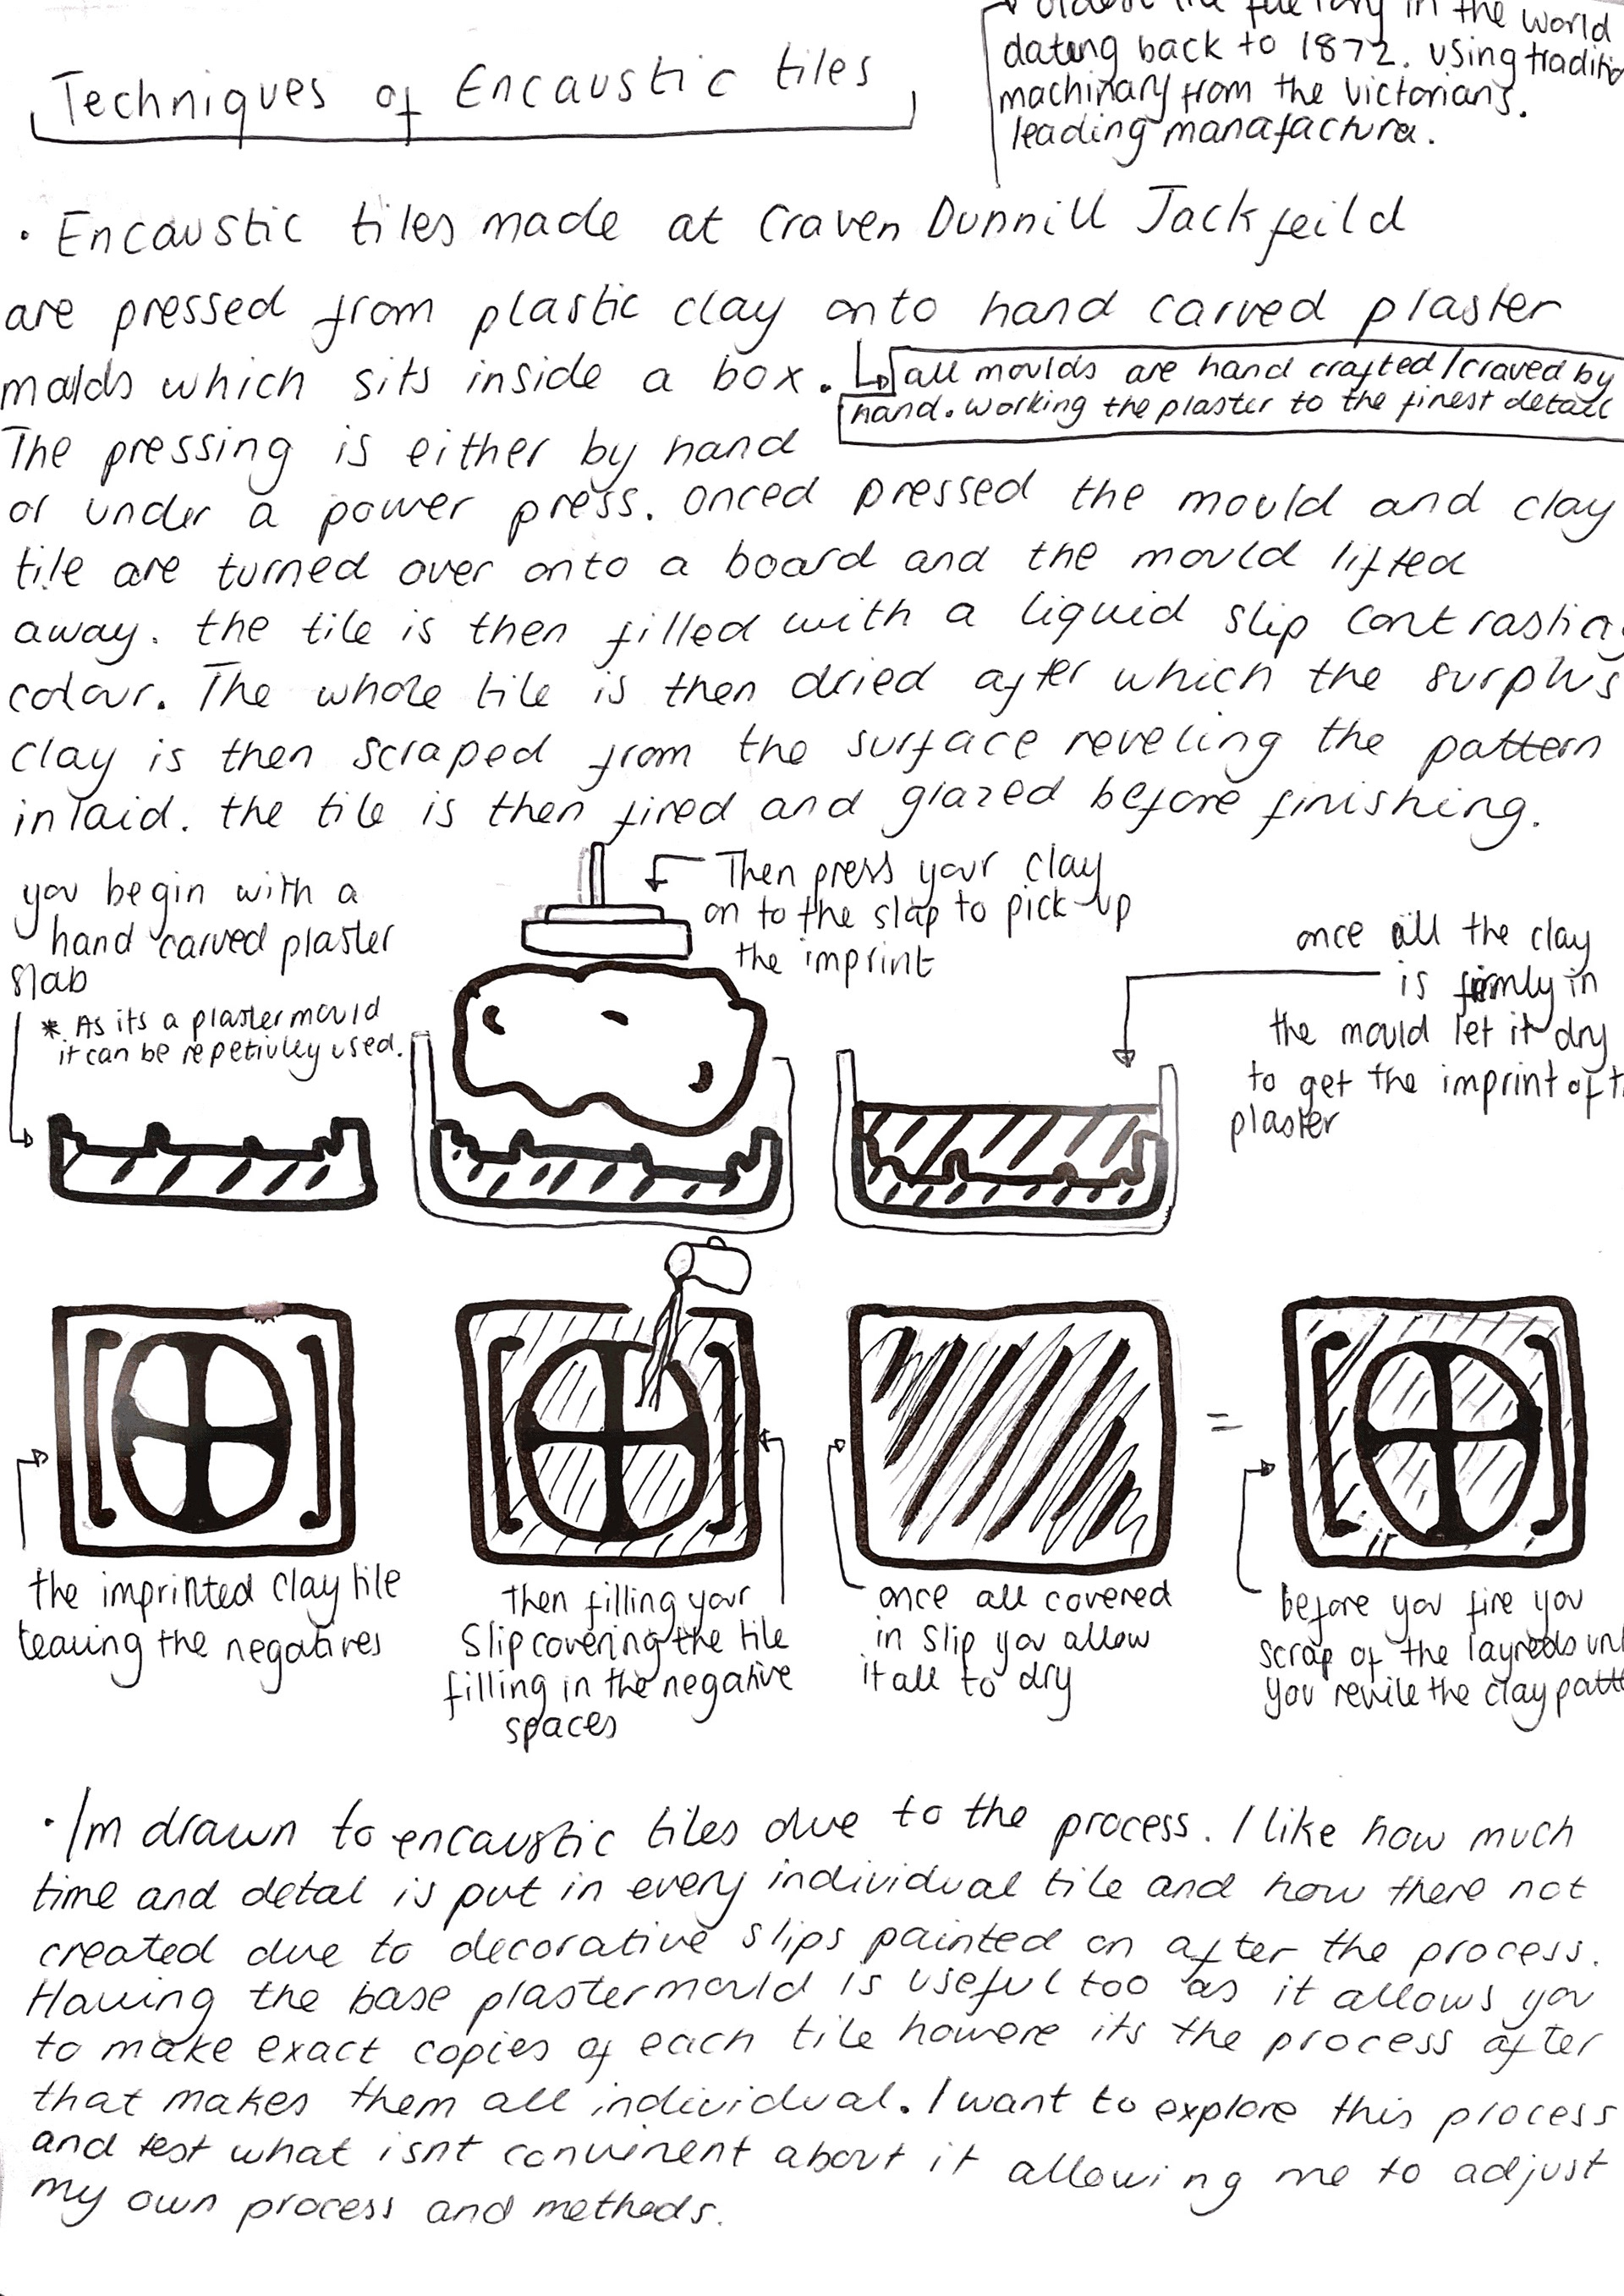 Techniques of Encaustic tiles
oldest tile factory in the world
dating back to 1872. using traditio
machinary from the victorians.
leading manafactura.
· Encaustic tiles made at Craven Dunnill Jackfeild
are pressed from plastic clay onto hand carved plaster
molds which sits inside a box.
all moulds are hand crafted/craved by
hand. working the plaster to the finest detail
The pressing is either by hand
or under a power press. onced pressed the mould and clay
tile are turned over onto a board and the mould lifted
away. the tile is then filled with a liquid slip contrasting
colour. The whole tile is then dried after which the surplus
clay is then scraped from the surface reveling the pattern
inlaid. the tile is then fired and glazed before finishing.
you begin with a
hand carved plaster
slab
* As its a plaster mould
it can be repetivley used.
Then press your clay
on to the slap to pick up
the imprint
once all the clay
is firmly in
the mould let it dry
to get the imprint of t
plaster
the imprinted clay tile
leaving the negatives
then filling your
slip covering the tile
filling in the negative
spaces
once all covered
in slip you allow
it all to dry
=
before you fire you
scrap of the layreds un
you revile the clay patt
· Im drawn to encaustic tiles due to the process. I like how much
time and detal is put in every individual tile and how there not
created due to decorative slips painted on after the process.
Having the base plaster mould is useful too as it allows you
to make exact copies of each tile howere its the process after
that makes them all individual. I want to explore this process
and test what isnt convinent about it allowing me to adjust
my own process and methods.